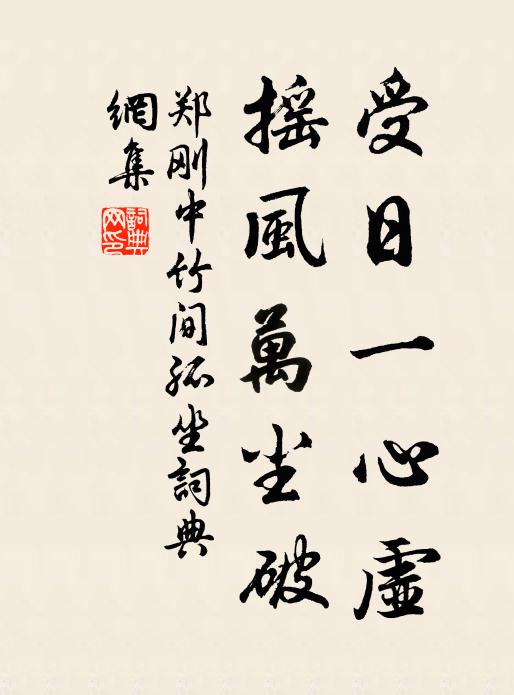 受日一心虛
搖風萬尘破
郑刚中竹间孤坐詞典
網集
詞典网印